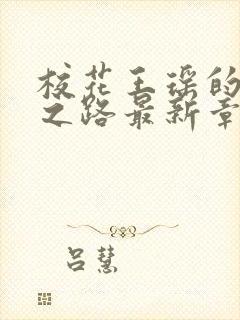 校花王瑶的
之路最新章
吕慧